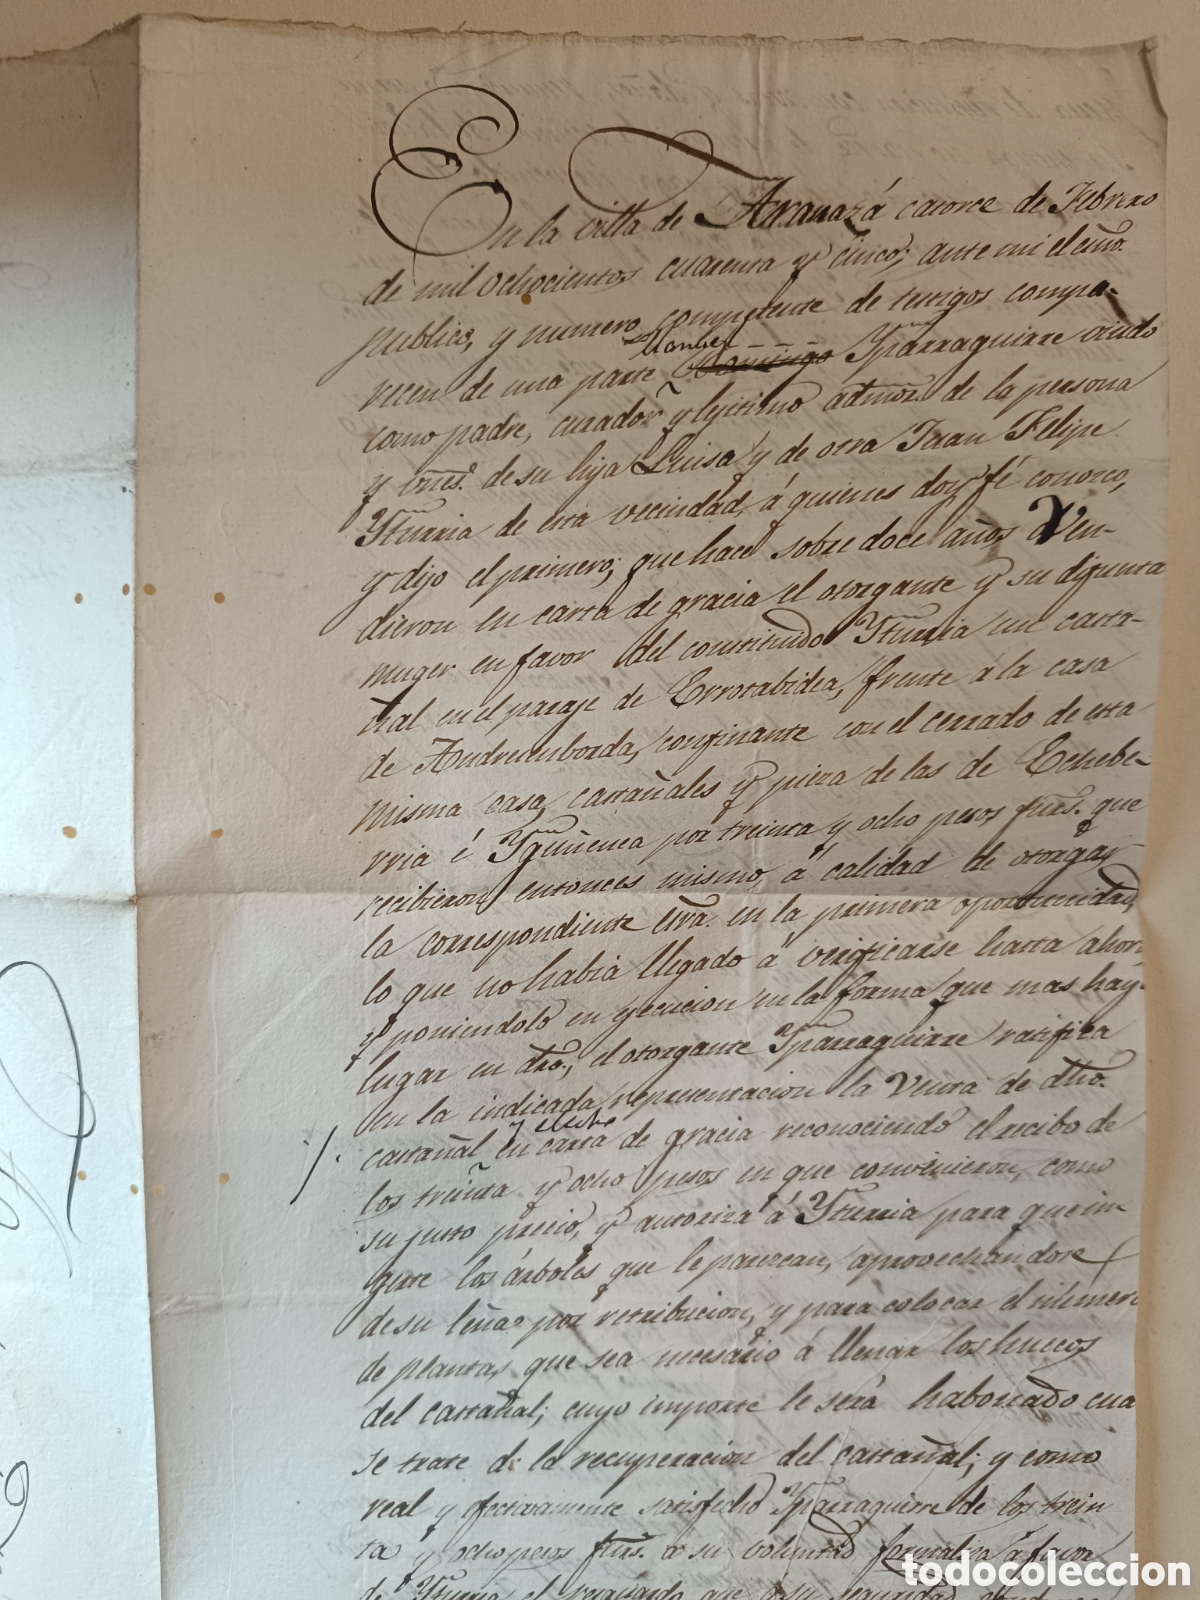 En la villa de Aranazá catorce de Febrero
de mil ochocientos cuarenta y cinco; ante mi el eśno.
publico, y numero competente de testigos compa-
recen de una parte Domingo Yparraguirre viudo
como padre, curador y legitimo admor. de la persona
y bns. de su hija Luisa y de otra Juan Felipe
Yturria de esta vecindad, á quienes doy fé conozco,
y dijo el primero; que hace sobre doce años Ven-
dieron en carta de gracia el otorgante y su difunta
muger en favor del constituido Yturria un casta-
ñal en el parage de Errotabidea, frente á la casa
de Andresenborda, confinante con el cerrado de esta
misma casa, castañales y pieza de las de Echebe-
rria é Yguiñenea por treinta y ocho pesos ftes. que
recibieron entonces mismo, á calidad de otorgar
la correspondiente esra. en la primera oportunidad,
lo que no habia llegado á verificarse hasta ahora
y poniendolo en ejecucion en la forma que mas hay
lugar en dro., el otorgante Yparraguirre ratifica
en la indicada representacion la Venta de dho.
castañal en carta de gracia reconociendo el recibo de
los treinta y ocho pesos en que convinieron, como
su justo precio, y autoriza á Yturria para que in-
gerte los árboles que le parezcan, aprovechandose
de su leña por retribucion, y para colocar el número
de plantas que sea necesario á llenar los huecos
del castañal; cuyo importe le será habonado cua
se trate de la recuperacion del castañal; y como
real y efectivamente satisfecho Yparraguirre de los trein
ta y ocho pesos ftes. á su voluntad formaliza á favor
de Yturria el resguardo que á su seguridad
todocoleccion